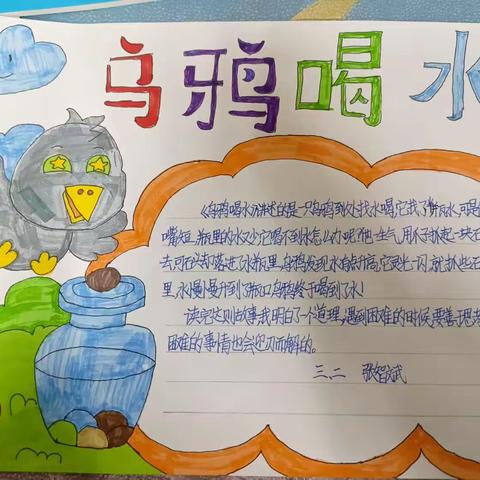 乌鸦喝水
《乌鸦喝水》讲述的是一只乌鸦到处找水喝,它找了个瓶水,可是
嘴短,瓶里的水又少它喝不到水怎么办呢?他一生气,用爪子抓起一块石
去,可石头却落进了水瓶里,乌鸦发现水有点升高,它灵光一闪,就抓些石
里,水慢慢升到了瓶口乌鸦终于喝到了水!
读完这则故事我明白了一个道理,遇到困难的时候,要善于思考
困难的事情也会迎刃而解的。
三、二 张智斌